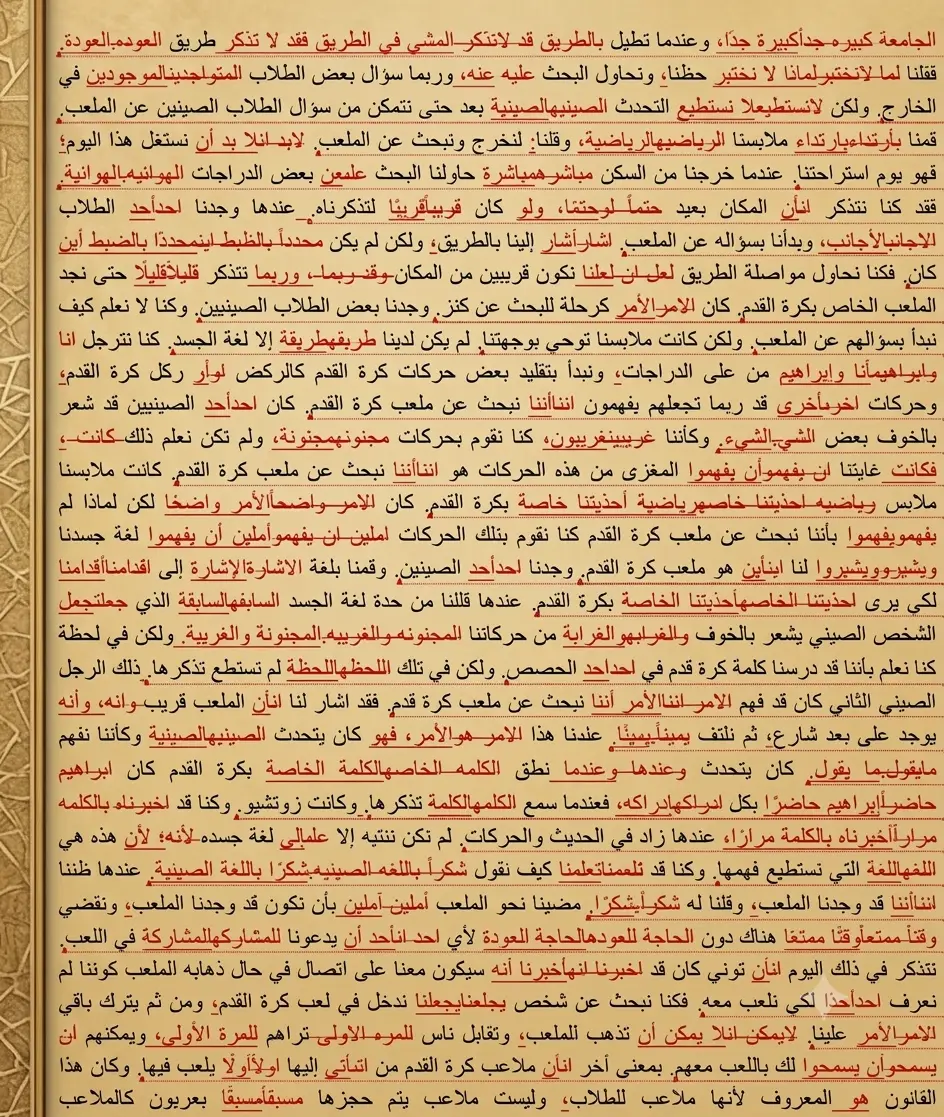 الجامعة كبيره جدأكبيرة جدًا، وعندما تطيل بالطريق قد لاتتذكر المشي في الطريق فقد لا تذكر طريق العوده.العودة.
فقلنا لما لانختبرلماذا لا نختبر حظنا، ونحاول البحث عليه عنه، وربما سؤال بعض الطلاب المتواجدينالموجودين في
الخارج. ولكن لانستطيعلا نستطيع التحدث الصينيهالصينية بعد حتى نتمكن من سؤال الطلاب الصينين عن الملعب.
قمنا بأرتداءبارتداء ملابسنا الرياضيهالرياضية، وقلنا: لنخرج ونبحث عن الملعب. لابد انلا بد أن نستغل هذا اليوم؛
فهو يوم استراحتنا. عندما خرجنا من السكن مباشرهمباشرة حاولنا البحث علىعن بعض الدراجات الهوائيه.الهوائية.
فقد كنا نتذكر انأن المكان بعيد حتماً لوحتمًا، ولو كان قريبأقريبًا لتذكرناه. عندها وجدنا احدأحد الطلاب
الاجانبالأجانب، وبدأنا بسؤاله عن الملعب. اشارأشار إلينا بالطريق، ولكن لم يكن محدداً بالظبط اينمحددًا بالضبط أين
كان. فكنا نحاول مواصلة الطريق لعل ان لعلنا نكون قريبين من المكان وقد ربما، وربما نتذكر قليلاًقليلًا حتى نجد
الملعب الخاص بكرة القدم. كان الامرالأمر كرحلة للبحث عن كنز. وجدنا بعض الطلاب الصينيين. وكنا لا نعلم كيف
نبدأ بسؤالهم عن الملعب. ولكن كانت ملابسنا توحي بوجهتنا. لم يكن لدينا طريقهطريقة إلا لغة الجسد. كنا نترجل انا
وابراهيمأنا وإبراهيم من على الدراجات، ونبدأ بتقليد بعض حركات كرة القدم كالركض لوأو ركل كرة القدم،
وحركات اخرىأخرى قد ربما تجعلهم يفهمون اننأأننا نبحث عن ملعب كرة القدم. كان احدأحد الصينيين قد شعر
بالخوف بعض الشي.الشيء. وكأننا غريبينغريبون، كنا نقوم بحركات مجنونهمجنونة، ولم تكن نعلم ذلك كانت ،
فكانت غايتنا ان يفهموأن يفهموا المغزى من هذه الحركات هو انناأننا نبحث عن ملعب كرة القدم. كانت ملابسنا
ملابس رياضيه احذيتنا خاصهرياضية أحذيتنا خاصة بكرة القدم. كان الامر واضحاًالأمر واضحًا لكن لماذا لم
يفهمويفهموا بأننا نبحث عن ملعب كرة القدم كنا نقوم بتلك الحركات املين ان يفهموآملين أن يفهموا لغة جسدنا
ويشيروويشيروا لنا اينأين هو ملعب كرة القدم. وجدنا احدأحد الصينين. وقمنا بلغة الاشارةالإشارة إلى اقدامناأقدامنا
لكي يرى احذيتنا الخاصهأحذيتنا الخاصة بكرة القدم. عندها قللنا من حدة لغة الجسد السابقهالسابقة الذي جعلتجعل
الشخص الصيني يشعر بالخوف والغرابهوالغرابة من حركاتنا المجنونه والغريبه.المجنونة والغريبة. ولكن في لحظة
كنا نعلم بأننا قد درسنا كلمة كرة قدم في احداحد الحصص. ولكن في تلك اللحظهاللحظة لم تستطع تذكرها. ذلك الرجل
الصيني الثاني كان قد فهم الامر انناالأمر أننا نبحث عن ملعب كرة قدم. فقد اشار لنا انأن الملعب قريب وانه، وأنه
يوجد على بعد شارع، ثم نلتف يميناًيمينًا. علدنا هذا الامر هوالأمر، فهو كان يتحدث الصينيهالصينية وكأننا نفهم
مايقول.ما يقول. كان يتحدث وعندها وعندما نطق الكلمه الخاصهالكلمة الخاصة بكرة القدم كان ابراهيم
حاضراًإبراهيم حاضرًا بكل ادراكهإدراكه، فعندما سمع الكلمهالكلمة تذكرها. وكانت زوتشيو. وكنا قد اخبرناه بالكلمه
مراراًأخبرناه بالكلمة مرارًا، عندها زاد في الحديث والحركات. لم نكن ننتبه إلا علىإلى لغة جسده لأنه؛ لأن هذه هي
اللغهاللغة التي نستطيع فهمها. وكنا قد تلعمناتعلمنا كيف نقول شكراً باللغه الصينيه.شكرًا باللغة الصينية. عندها ظننا
انناأننا قد وجدنا الملعب، وقلنا له شكراًشكرًا. مضينا نحو الملعب أملين آملين بأن نكون قد وجدنا الملعب، ونقضي
وقتاً ممتعاًوقتًا ممتعًا هناك دون الحاجة للعودهالحاجة العودة لأي احد انأحد أن يدعونا للمشاركهالمشاركة في اللعب.
نتذكر في ذلك اليوم انأن توني كان قد اخبرنا انهأخبرنا أنه سيكون معنا على اتصال في حال ذهابه الملعب كوننا لم
نعرف احدأحدًا لكي نلعب معه. فكنا نبحث عن شخص يجلعنايجعلنا ندخل في لعب كرة القدم، ومن ثم يترك باقي
الامرالأمر علينا. لايمكن انلا يمكن أن تذهب للملعب، وتقابل ناس للمره الاولى تراهم للمرة الأولى، ويمكنهم ان
يسمحوأن يسمحوا لك باللعب معهم. بمعنى أخر انأن ملاعب كرة القدم من اتىأتى إليها اولاًأولًا يلعب فيها. وكان هذا
القانون هو المعروف لأنها ملاعب للطلاب، وليست ملاعب يتم حجزها مسبقاًمسبقًا بعربون كالملاعب